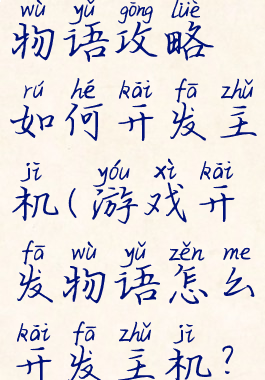 wù yǔ gōng lüè
物语攻略
rú hé kāi fā zhǔ
如何开发主
jī yóu xì kāi
机(游戏开
fā wù yǔ zěn me
发物语怎么
kāi fā zhǔ jī
开发主机?